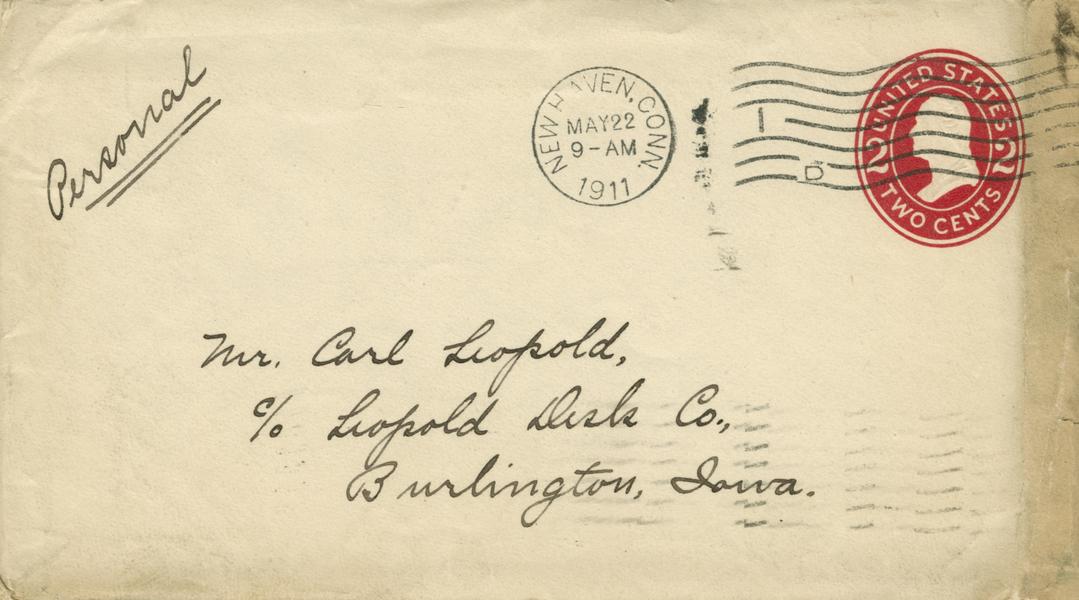 Personal
NEW HAVEN, CONN.
MAY 22
9-AM
1911
1
D
UNITED STATES
2 2
TWO CENTS
Mr. Carl Leopold,
c/o Leopold Desk Co.,
Burlington, Iowa.